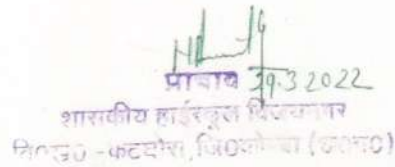 प्राचार्य 29.3.2022
शासकीय हाईस्कूल विजयनगर
वि०ख०-कटघोरा, जि०कोरबा (छ०ग०)